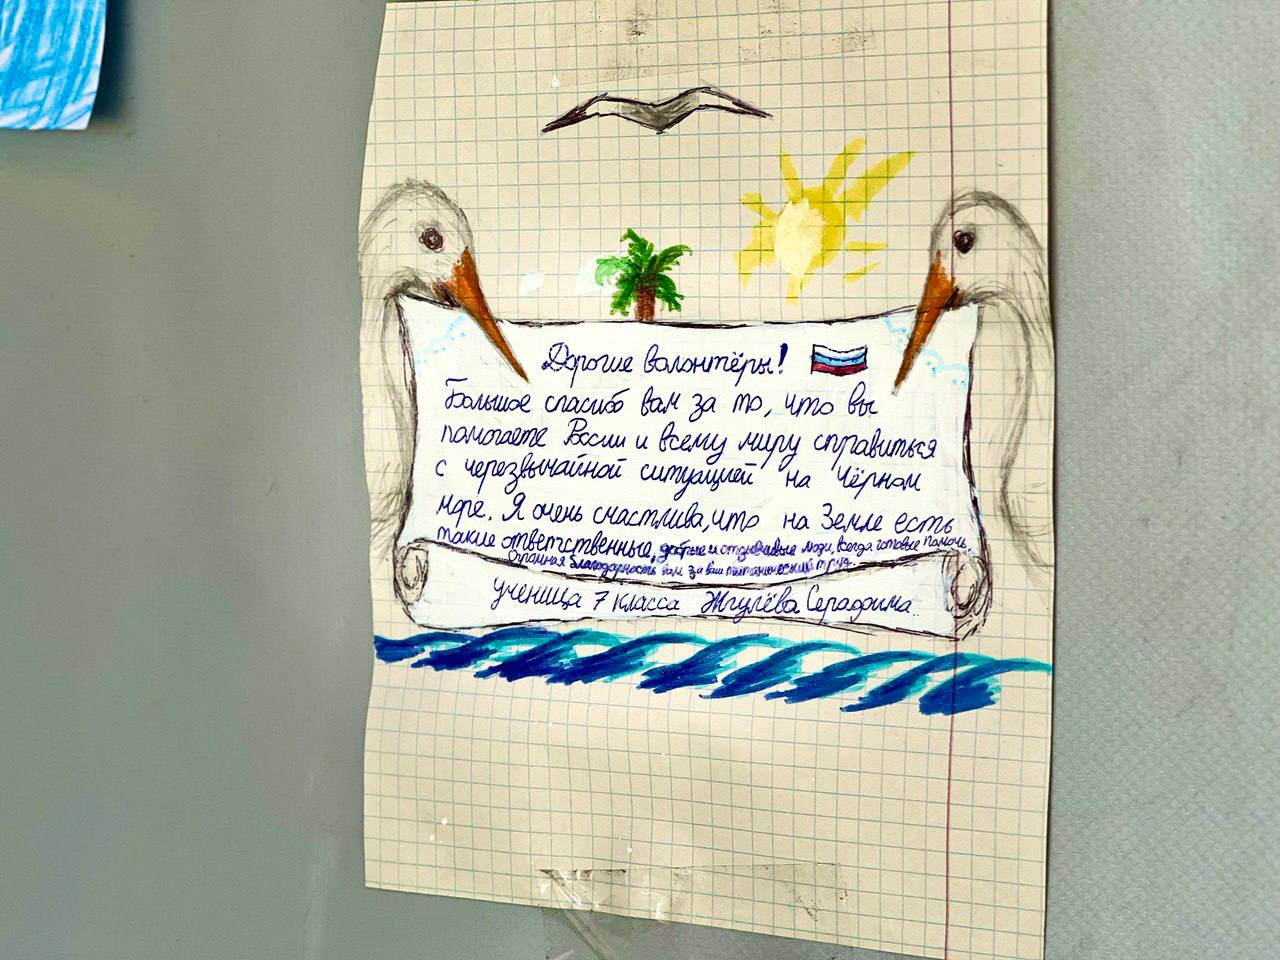 Дорогие волонтёры!
Большое спасибо вам за то, что вы
помогаете России и всему миру справиться
с черезвычайной ситуацией на Чёрном
море. Я очень счастлива, что на Земле есть
такие ответственные, добрые и отзывчивые люди, всегда готовые помочь.
Огромная благодарность вам за ваш титанический труд.
ученица 7 класса Жгулёва Серафима